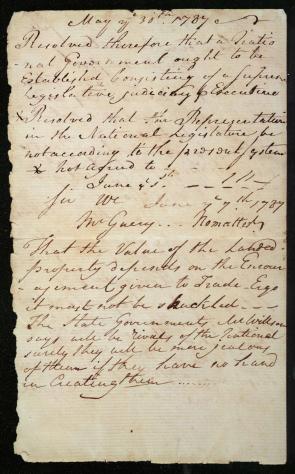 May ye 30th. 1787
Resolved therefore that a Natio
nal Government ought to be
Established Consisting of a Supreme
Legislative, judiciary & Executive
x Resolved that the Representation
in the National Legislature be
not according to the present system
x not agreed to
June ye
June ye 7th 1787
That the Value of the Landed
Property depends on the Encour
agement given to Trade Ergo
it must not be shackled
The State Governments Mr Willson
says will be Rivals of the National
surely they will be more jealous
of them if they have no hand
in Creating them